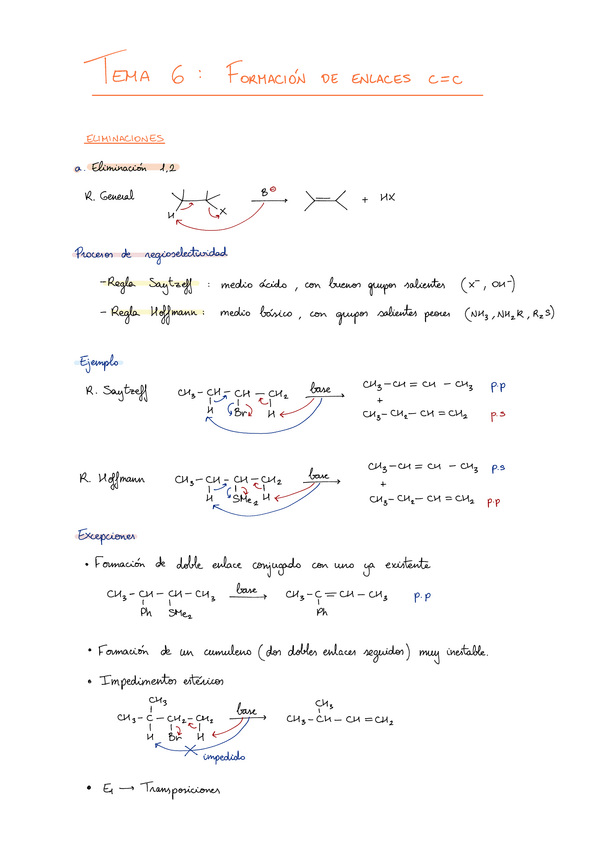 TEMA 6 : FORMACIÓN DE ENLACES C=C
ELIMINACIONES
a. Eliminación 1,2
R. General H X B⊖ → + HX
Procesos de regioselectividad
- Regla Saytzeff : medio ácido, con buenos grupos salientes (X⁻, OH⁻)
- Regla Hoffmann : medio básico, con grupos salientes peores (NH₃, NH₂R, R₂S)
Ejemplo
R. Saytzeff CH₃-CH-CH-CH₂ base → CH₃-CH=CH-CH₃ p.p
H Br H +
CH₃-CH₂-CH=CH₂ p.s
R. Hoffmann CH₃-CH-CH-CH₂ base → CH₃-CH=CH-CH₃ p.s
H SMe₂ H +
CH₃-CH₂-CH=CH₂ p.p
Excepciones
• Formación de doble enlace conjugado con uno ya existente
CH₃-CH-CH-CH₃ base → CH₃-C=CH-CH₃ p.p
Ph SMe₂ Ph
• Formación de un cumuleno (dos dobles enlaces seguidos) muy inestable.
• Impedimentos estéricos
CH₃ CH₃
CH₃-C-CH₂-CH₂ base → CH₃-CH-CH=CH₂
H Br H
impedido
• E₁ → Transposiciones